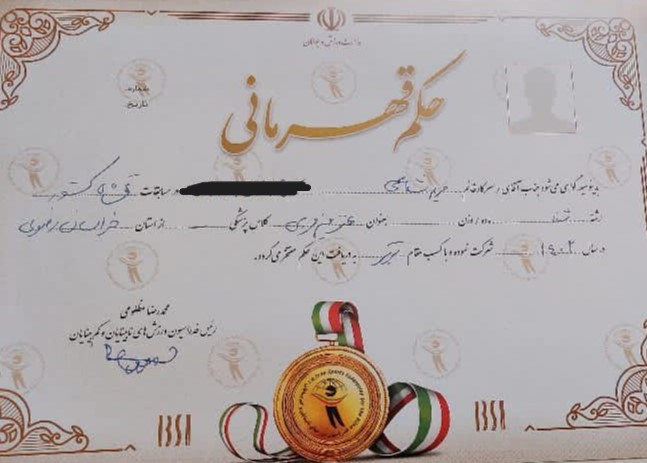 وزارت ورزش و جوانان
شماره:
تاریخ:
حکم قهرمانی
بدینوسیله گواهی می‌شود جناب آقای / سرکار خانم مریم در مسابقات قهرمانی کشور
رشته شنا رده / وزن بعنوان کلاس پزشکی از استان خراسان رضوی
در سال ۱۴۰۲ شرکت نموده و با کسب مقام به دریافت این حکم مفتخر می‌گردد.
محمدرضا مظلومی
رئیس فدراسیون ورزش‌های نابینایان و کم‌بینایان
I.R.Iran Sports Federation for the Blind
IBSI IBSI